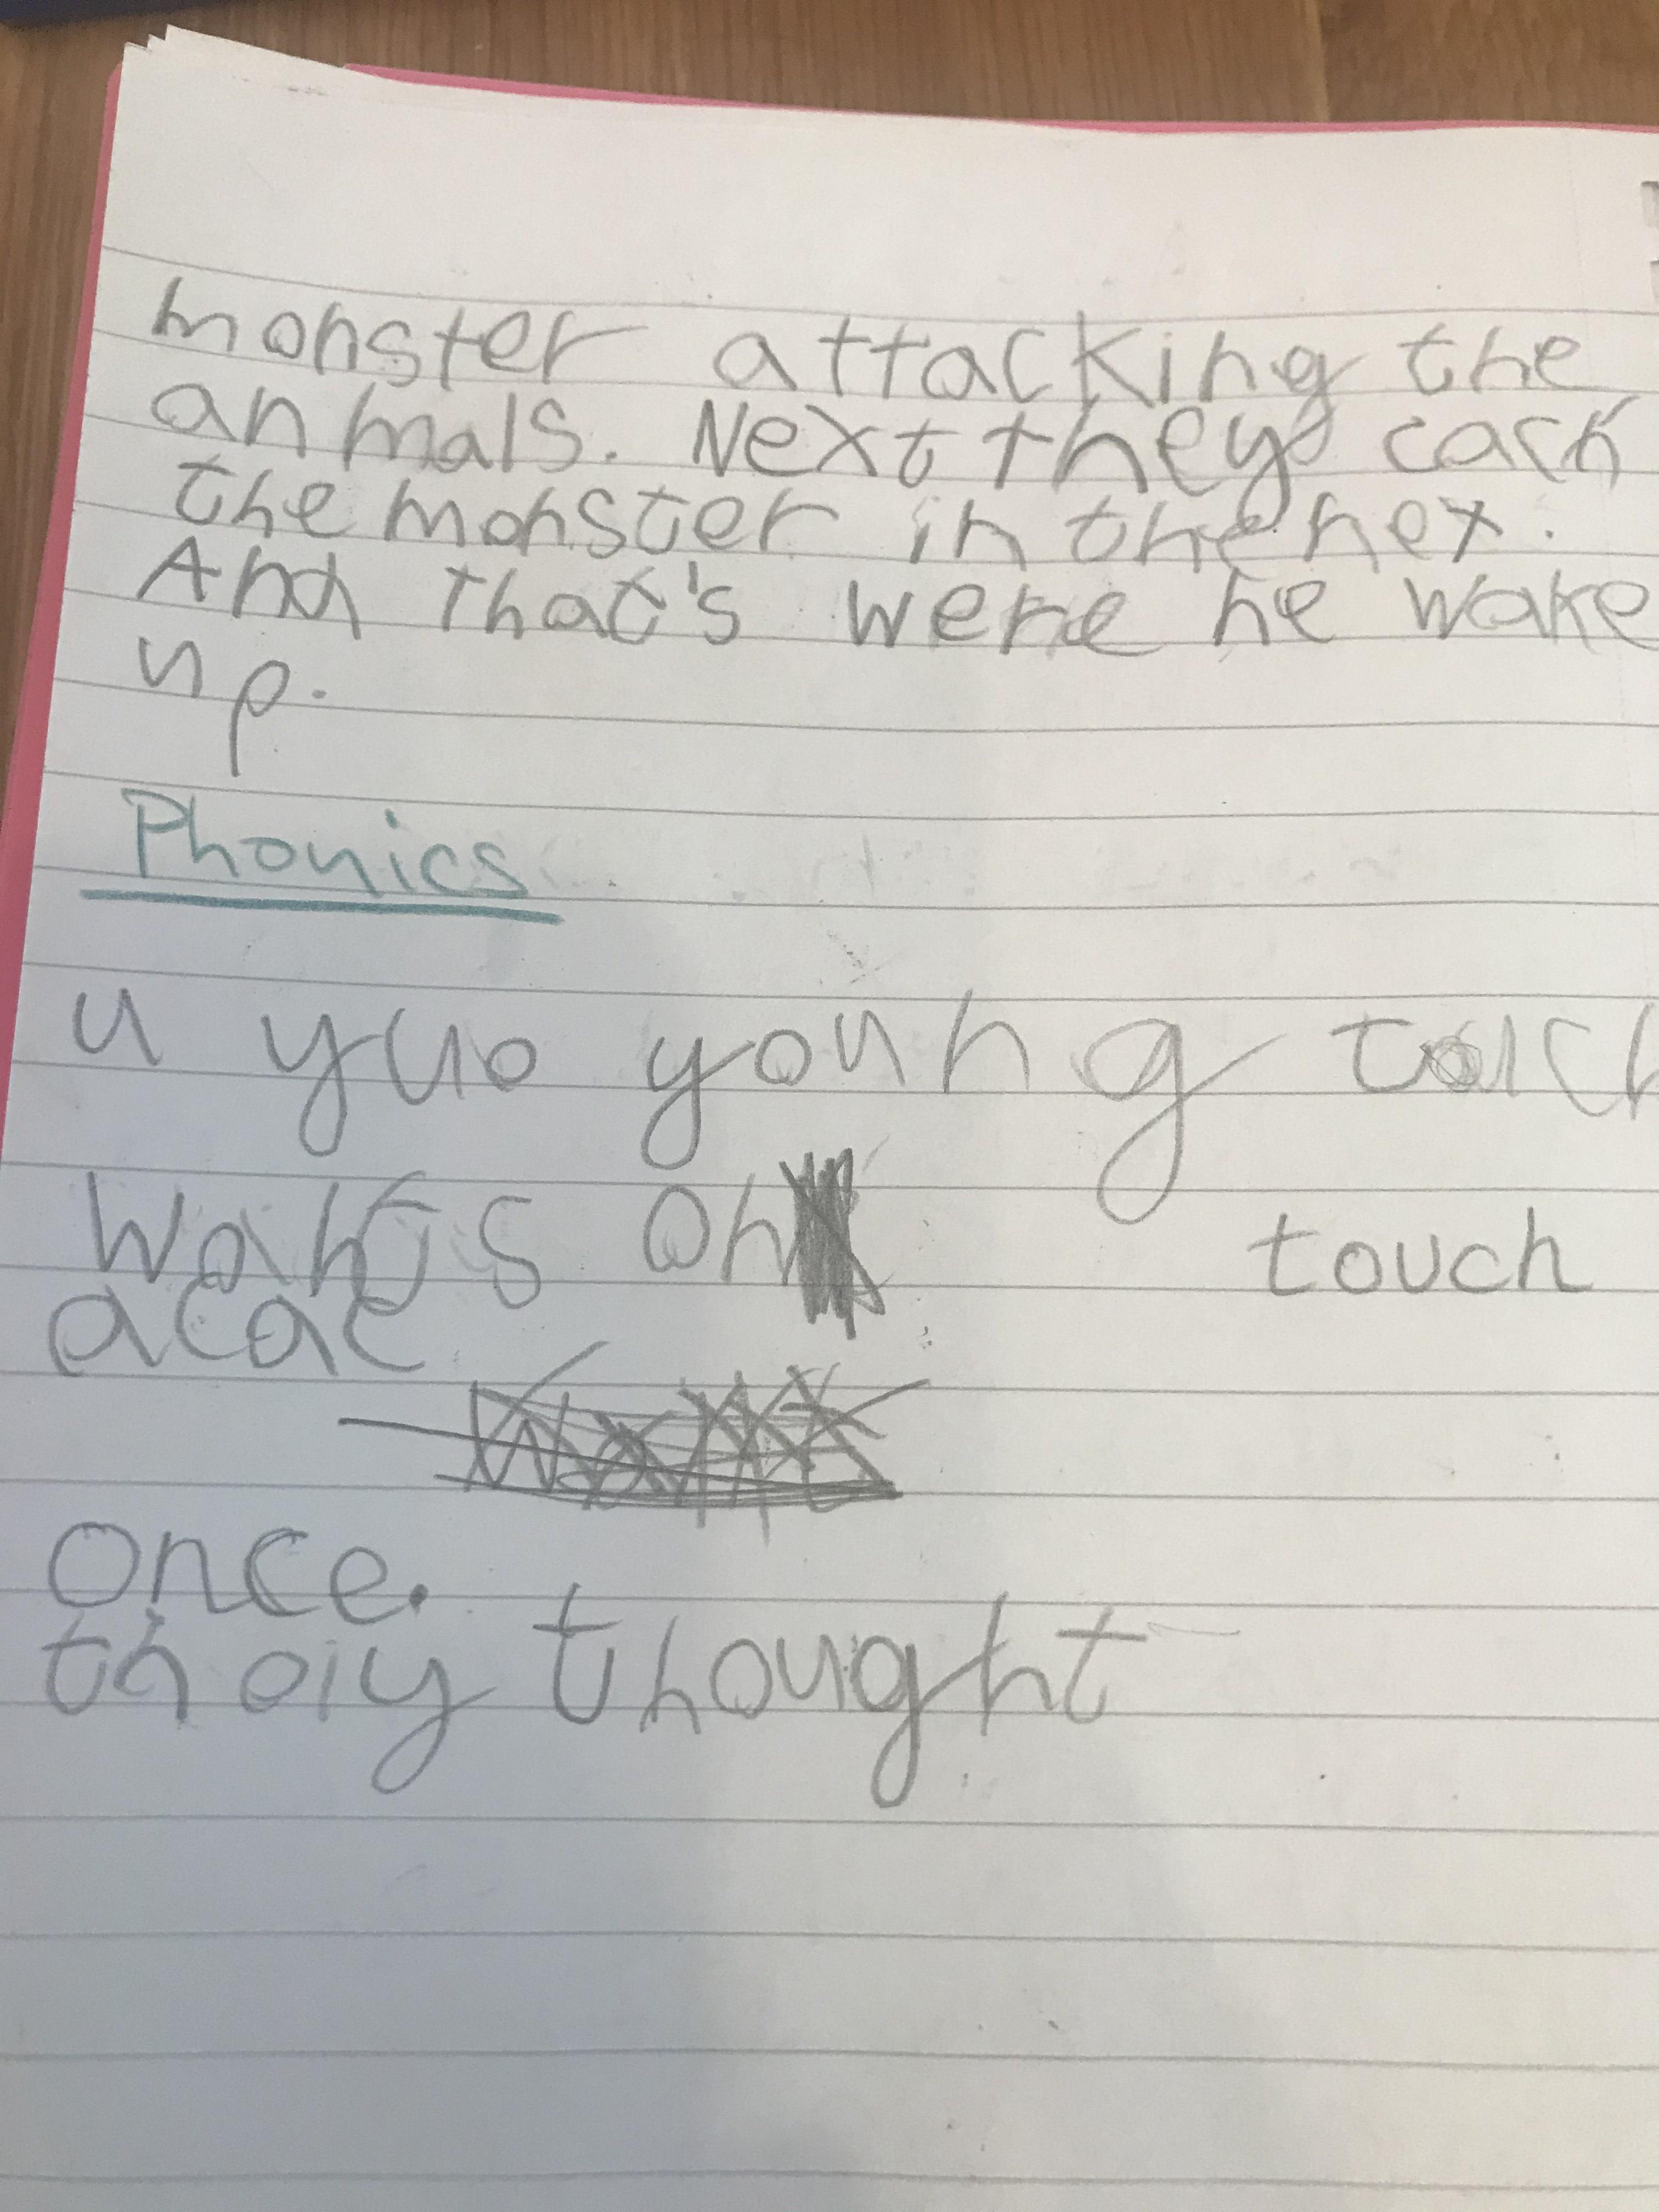 monster attacking the
anmals. Next they cack
the monster in the net.
And that's were he wake
up.
Phonics
u yuo young
wants on touch
acac
once.
thoiy thought